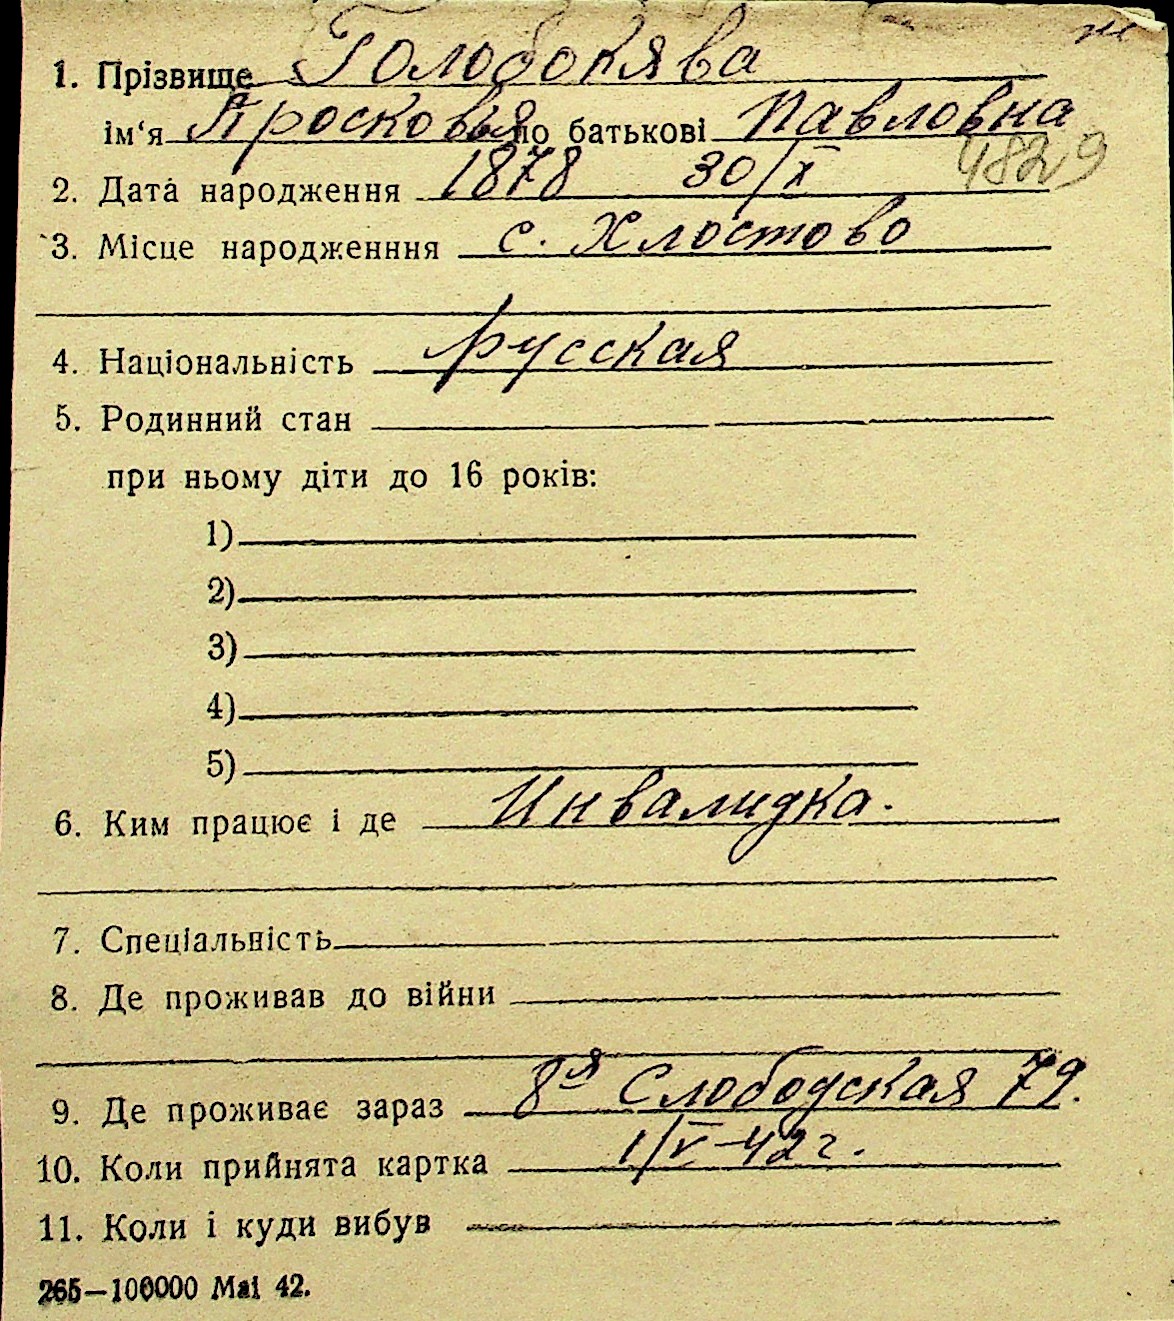 ж
1. Прізвище Голобокява
ім'я Просковья по батькові Павловна
4829
2. Дата народження 1878 30/X
3. Місце народженння с. Хлостово
4. Національність русская
5. Родинний стан
при ньому діти до 16 років:
1)
2)
3)
4)
5)
6. Ким працює і де Инвалидка.
7. Спеціальність
8. Де проживав до війни
9. Де проживає зараз 8я Слободская 79.
10. Коли прийнята картка 1/V-42 г.
11. Коли і куди вибув
265—100000 Mai 42.